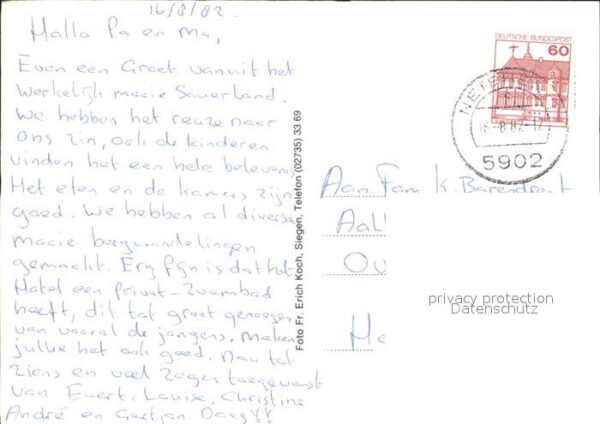 16/8/82.
Hallo Pa en Ma,
Even een Groet vanuit het
Werkelijk mooie Sauerland.
We hebben het reuze naar
ons zin, ook de kinderen
vinden het een hele belevenis
Het eten en de kamers zijn
goed. We hebben al diverse
mooie bergwandelingen
gemaakt. Erg fijn is dat het
Hotel een privat-Zwembad
heeft, dit tot groot genoegen
van vooral de jongens, maken
jullie het ook goed. Nou tot
ziens en veel Zegen toegewenst
van Evert, Louise, Christine
André en Gertjan. Daag!!
Foto Fr. Erich Koch, Siegen, Telefon (02735) 33 69
DEUTSCHE BUNDESPOST
60
8.82-12
5902
Aan. Fam K. Barendregt
Aal
Ou
He
privacy protection
Datenschutz